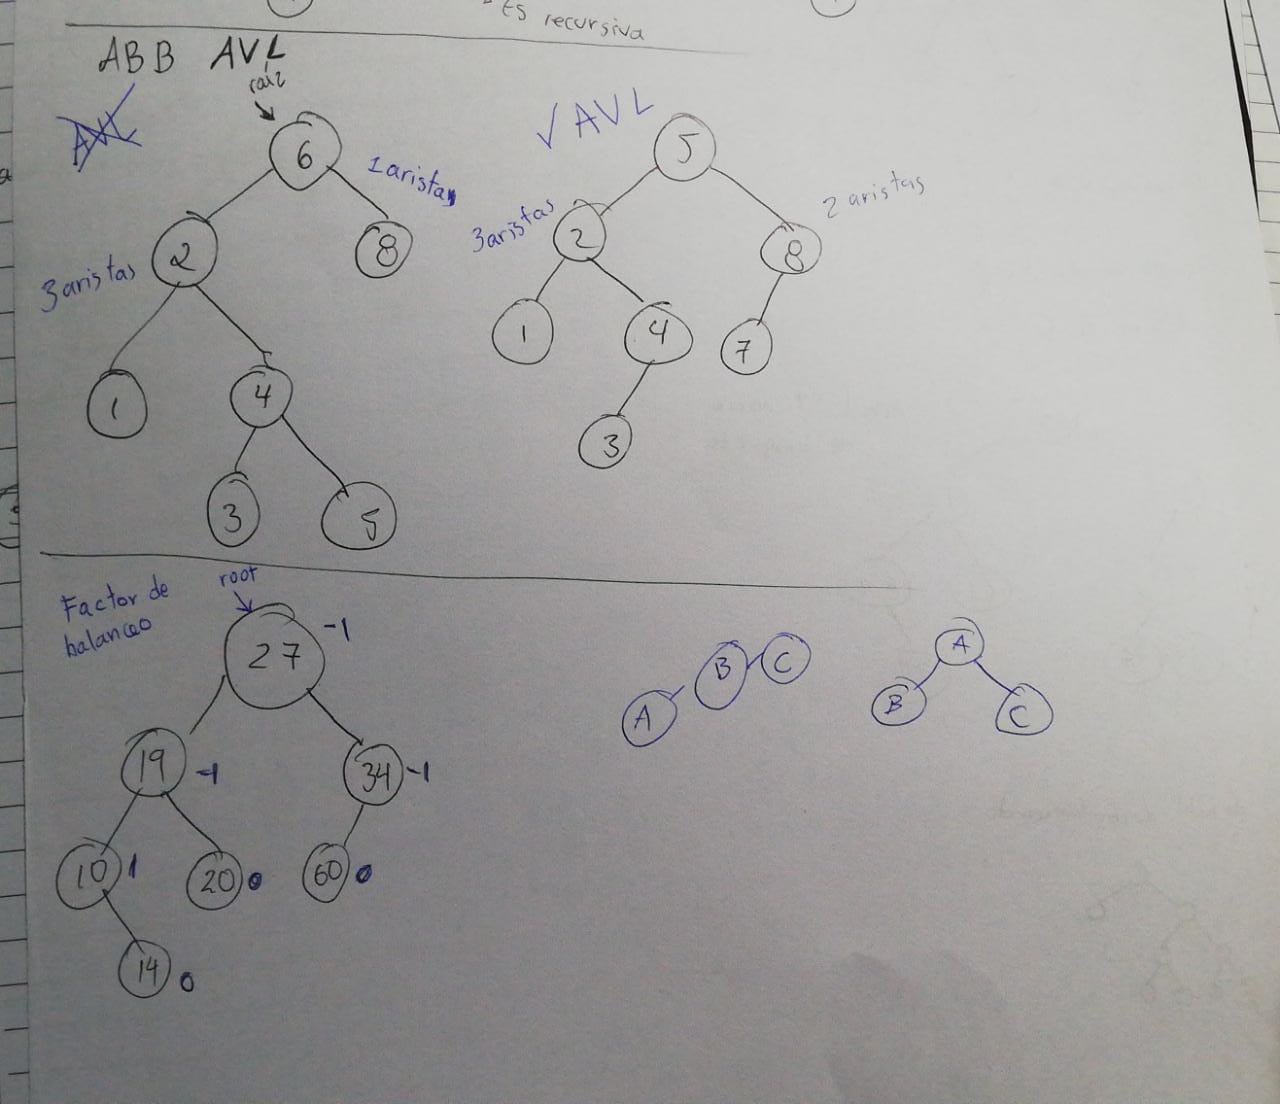 Es recursiva
ABB AVL
raiz
AVL
6
1 aristas
2
8
3 aristas
1
4
3
5
✓ AVL
5
3 aristas
2
8
2 aristas
1
4
7
3
Factor de
balanceo
root
27 -1
19 -1
34 -1
10 1
20 0
60 0
14 0
A B C
A
B
C